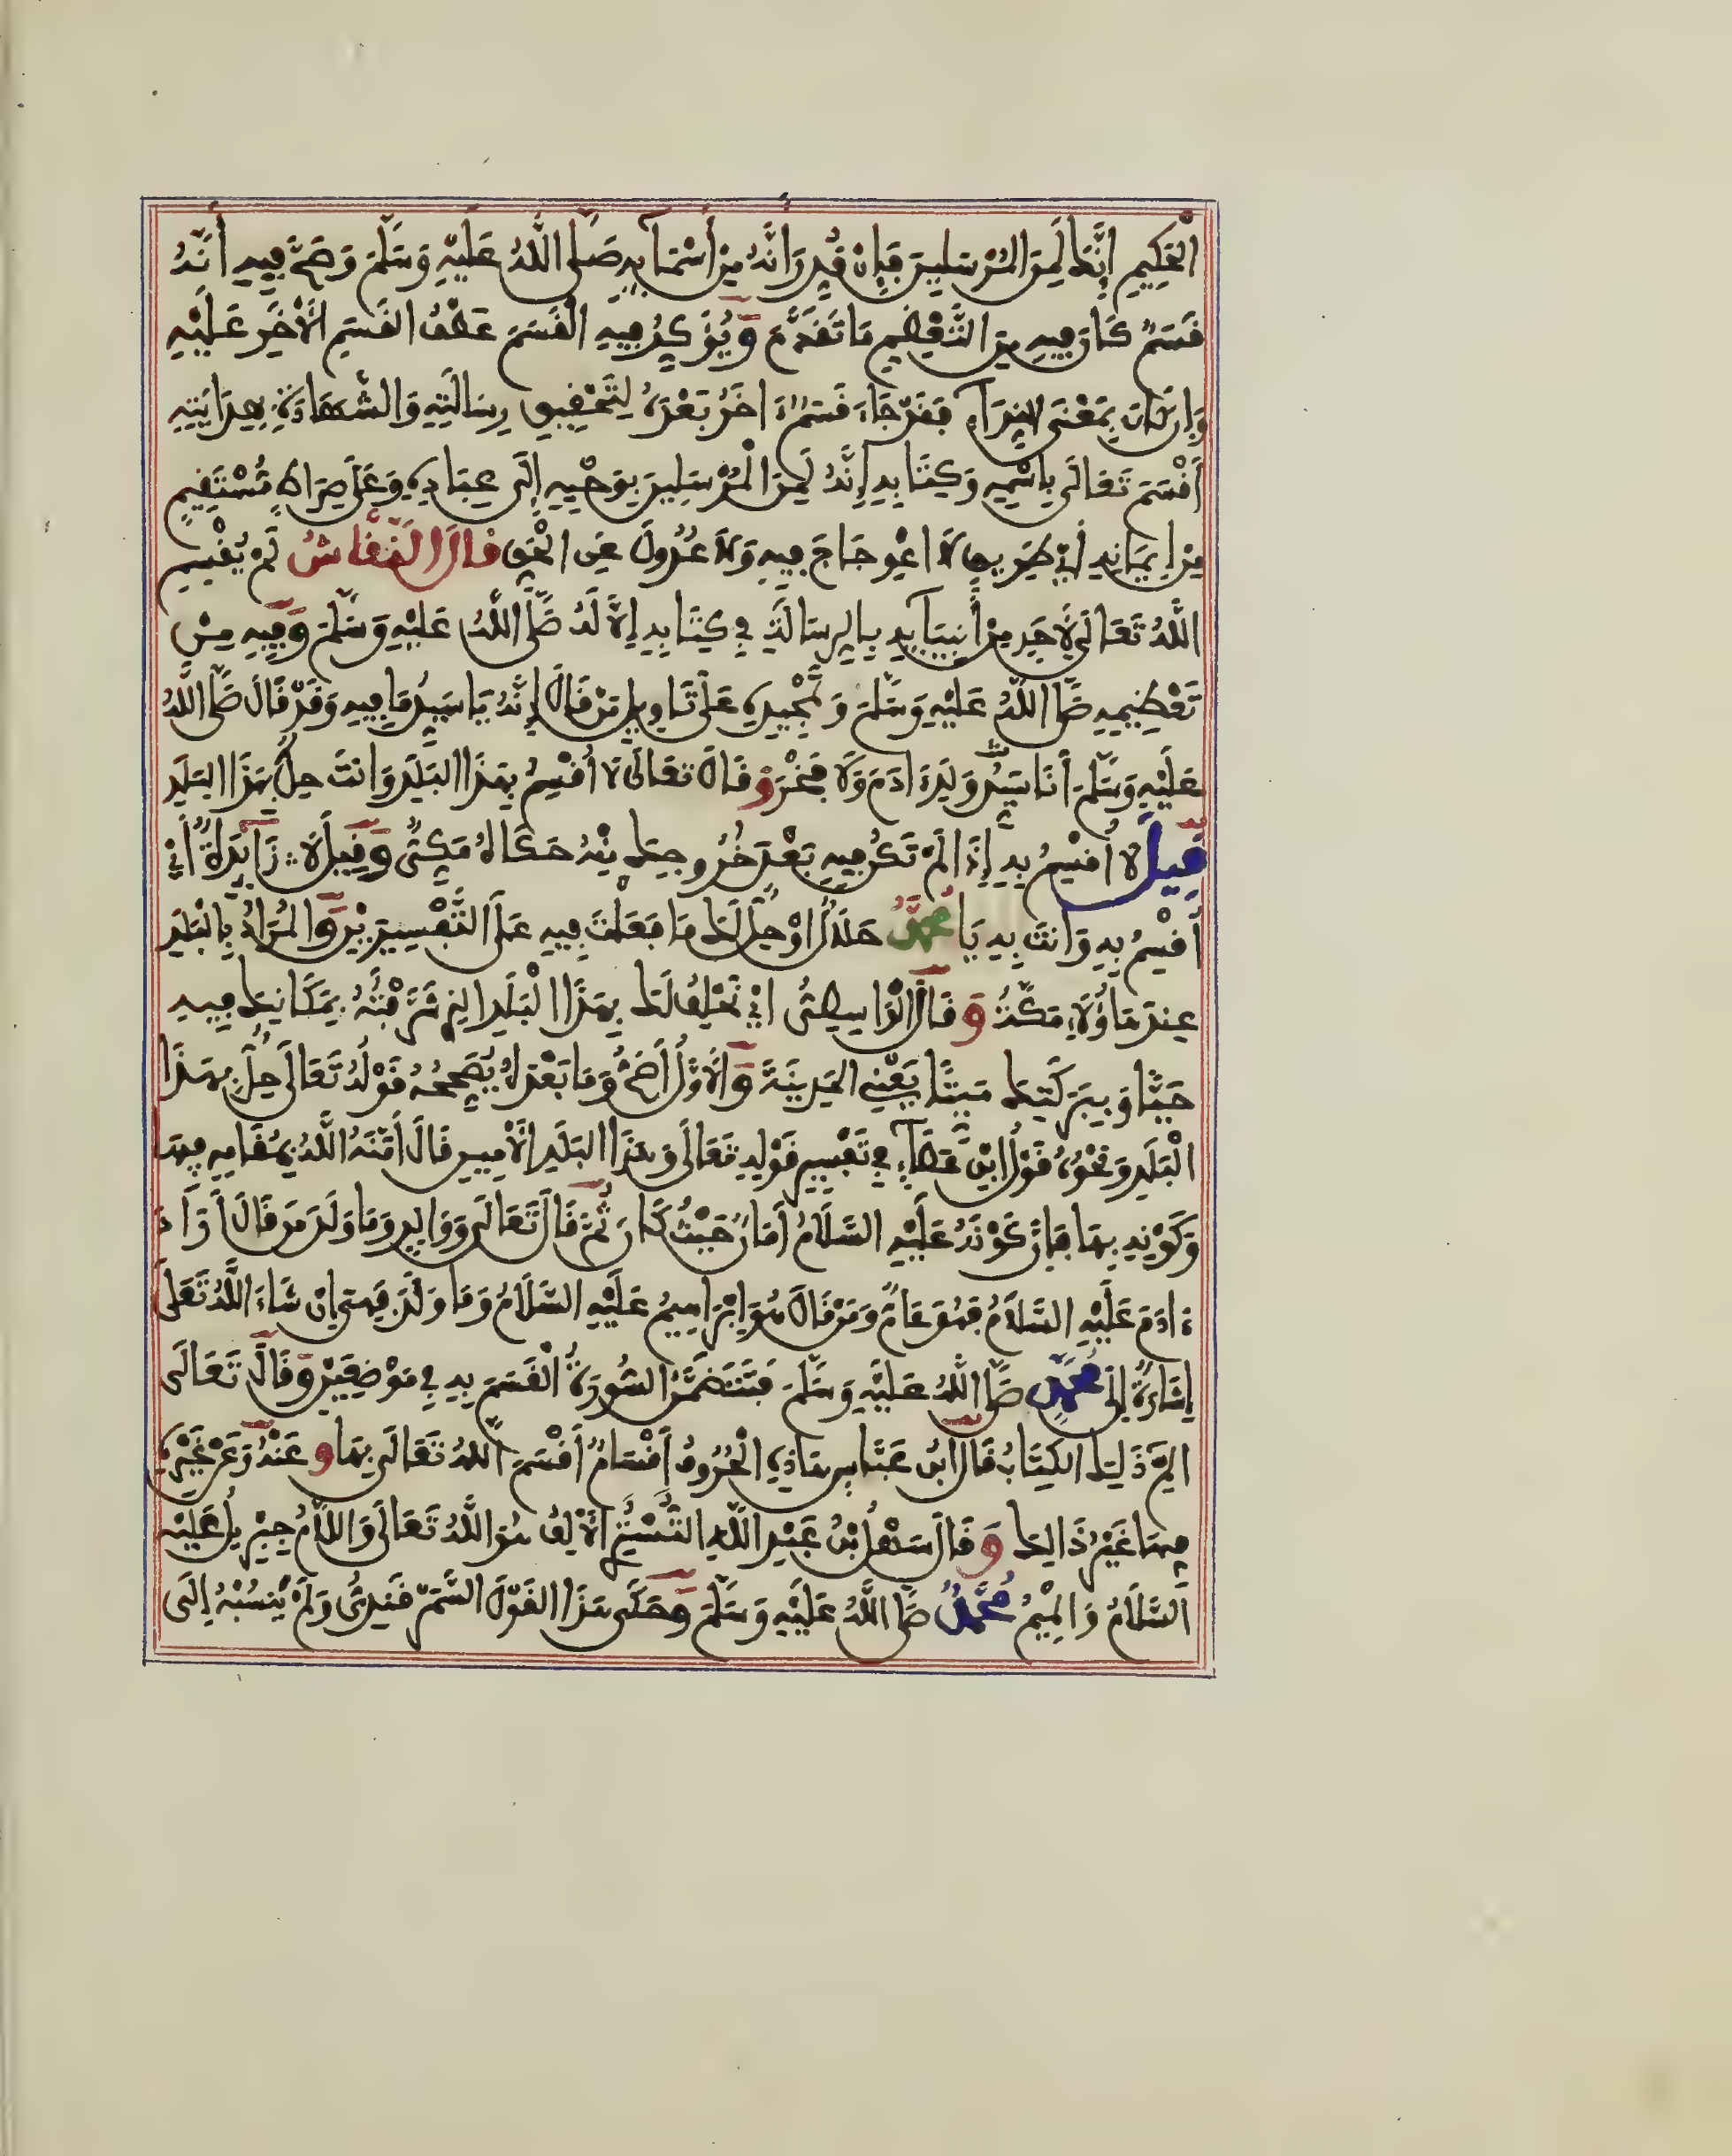 الْحَكِيمِ إِنَّكَ لَمِنَ الْمُرْسَلِينَ فَإِنْ قُدِّرَ أَنَّهُ مِنْ أَسْمَآئِهِ صَلَّى اللَّهُ عَلَيْهِ وَسَلَّمَ وَصَحَّ فِيهِ أَنَّهُ
قَسَمٌ كَانَ فِيهِ مِنَ التَّعْظِيمِ مَا تَقَدَّمَ وَيُؤَكِّدُ فِيهِ الْقَسَمَ عَطْفُ الْقَسَمِ الْأَخَرِ عَلَيْهِ
وَإِنْ كَانَ بِمَعْنَى النِّدَآءِ فَقَدْ جَاءَ قَسَمٌ ءَاخَرُ بَعْدَهُ لِتَحْقِيقِ رِسَالَتِهِ وَالشَّهَادَةِ بِهِدَايَتِهِ
أَقْسَمَ تَعَالَى بِاسْمِهِ وَكِتَابِهِ إِنَّهُ لَمِنَ الْمُرْسَلِينَ بِوَحْيِهِ إِلَى عِبَادِهِ وَعَلَى صِرَاطٍ مُسْتَقِيمٍ
مِنْ إِيمَانِهِ أَيْ طَرِيقٍ لَا اعْوِجَاجَ فِيهِ وَلَا عُدُولَ عَنِ الْحَقِّ قَالَ النَّقَّاشُ لَمْ يُقْسِمِ
اللَّهُ تَعَالَى لِأَحَدٍ مِنْ أَنْبِيَآئِهِ بِالرِّسَالَةِ فِي كِتَابِهِ إِلَّا لَهُ صَلَّى اللَّهُ عَلَيْهِ وَسَلَّمَ وَفِيهِ مِنْ
تَعْظِيمِهِ صَلَّى اللَّهُ عَلَيْهِ وَسَلَّمَ وَتَمْجِيدِهِ عَلَى تَاوِيلِ مَنْ قَالَ إِنَّهُ يَا سَيِّدُ مَا فِيهِ وَقَدْ قَالَ صَلَّى اللَّهُ
عَلَيْهِ وَسَلَّمَ أَنَا سَيِّدُ وَلَدِ ءَادَمَ وَلَا فَخْرَ وَقَالَ تَعَالَى لَا أُقْسِمُ بِهَذَا الْبَلَدِ وَأَنْتَ حِلٌّ بِهَذَا الْبَلَدِ
قِيلَ لَا أُقْسِمُ بِهِ إِذَا لَمْ تَكُنْ فِيهِ بَعْدَ خُرُوجِكَ مِنْهُ حَكَاهُ مَكِّيٌّ وَقِيلَ لَا زَائِدَةٌ أَيْ
أُقْسِمُ بِهِ وَأَنْتَ بِهِ يَا مُحَمَّدُ حَلَالٌ أَوْ حِلٌّ لَكَ مَا فَعَلْتَ فِيهِ عَلَى التَّفْسِيرَيْنِ وَالْمُرَادُ بِالْبَلَدِ
عِنْدَ هَاؤُلَاءِ مَكَّةُ وَقَالَ الْوَاسِطِيُّ أَيْ نَحْلِفُ لَكَ بِهَذَا الْبَلَدِ الَّذِي شَرَّفْتَهُ بِمَكَانِكَ فِيهِ
حَيًّا وَبِبَرَكَتِكَ مَيِّتًا يَعْنِي الْمَدِينَةَ وَالْأَوَّلُ أَصَحُّ وَمَا بَعْدَهُ يُصَحِّحُهُ قَوْلُهُ تَعَالَى حِلٌّ بِهَذَا
الْبَلَدِ وَنَحْوُهُ قَوْلُ ابْنِ عَطَآءٍ فِي تَفْسِيرِ قَوْلِهِ تَعَالَى وَهَذَا الْبَلَدِ الْأَمِينِ قَالَ أَمَّنَهُ اللَّهُ بِمُقَامِهِ فِيهَا
وَكَوْنِهِ بِهَا فَإِنَّ كَوْنَهُ عَلَيْهِ السَّلَامُ أَمَانٌ حَيْثُ كَانَ ثُمَّ قَالَ تَعَالَى وَوَالِدٍ وَمَا وَلَدَ مَنْ قَالَ أَرَادَ
ءَادَمَ عَلَيْهِ السَّلَامُ فَهُوَ عَامٌّ وَمَنْ قَالَ هُوَ إِبْرَاهِيمُ عَلَيْهِ السَّلَامُ وَمَا وَلَدَ فَهِيَ إِنْ شَاءَ اللَّهُ تَعَلَى
إِشَارَةٌ إِلَى مُحَمَّدٍ صَلَّى اللَّهُ عَلَيْهِ وَسَلَّمَ فَتَتَضَمَّنُ السُّورَةُ الْقَسَمَ بِهِ فِي مَوْضِعَيْنِ وَقَالَ تَعَالَى
الَمِّ ذَلِكَ الْكِتَابُ قَالَ ابْنُ عَبَّاسٍ هَاذِهِ الْحُرُوفُ أَقْسَامٌ أَقْسَمَ اللَّهُ تَعَالَى بِهَا وَعَنْهُ وَعَنْ غَيْرِهِ
فِيهَا غَيْرُ ذَالِكَ وَقَالَ سَهْلُ بْنُ عَبْدِ اللَّهِ التُّسْتَرِيُّ الْأَلِفُ هُوَ اللَّهُ تَعَالَى وَاللَّامُ جِبْرِيلُ عَلَيْهِ
السَّلَامُ وَالْمِيمُ مُحَمَّدٌ صَلَّى اللَّهُ عَلَيْهِ وَسَلَّمَ وَحَكَى هَذَا الْقَوْلَ السَّمَرْقَنْدِيُّ وَلَمْ يَنْسُبْهُ إِلَى